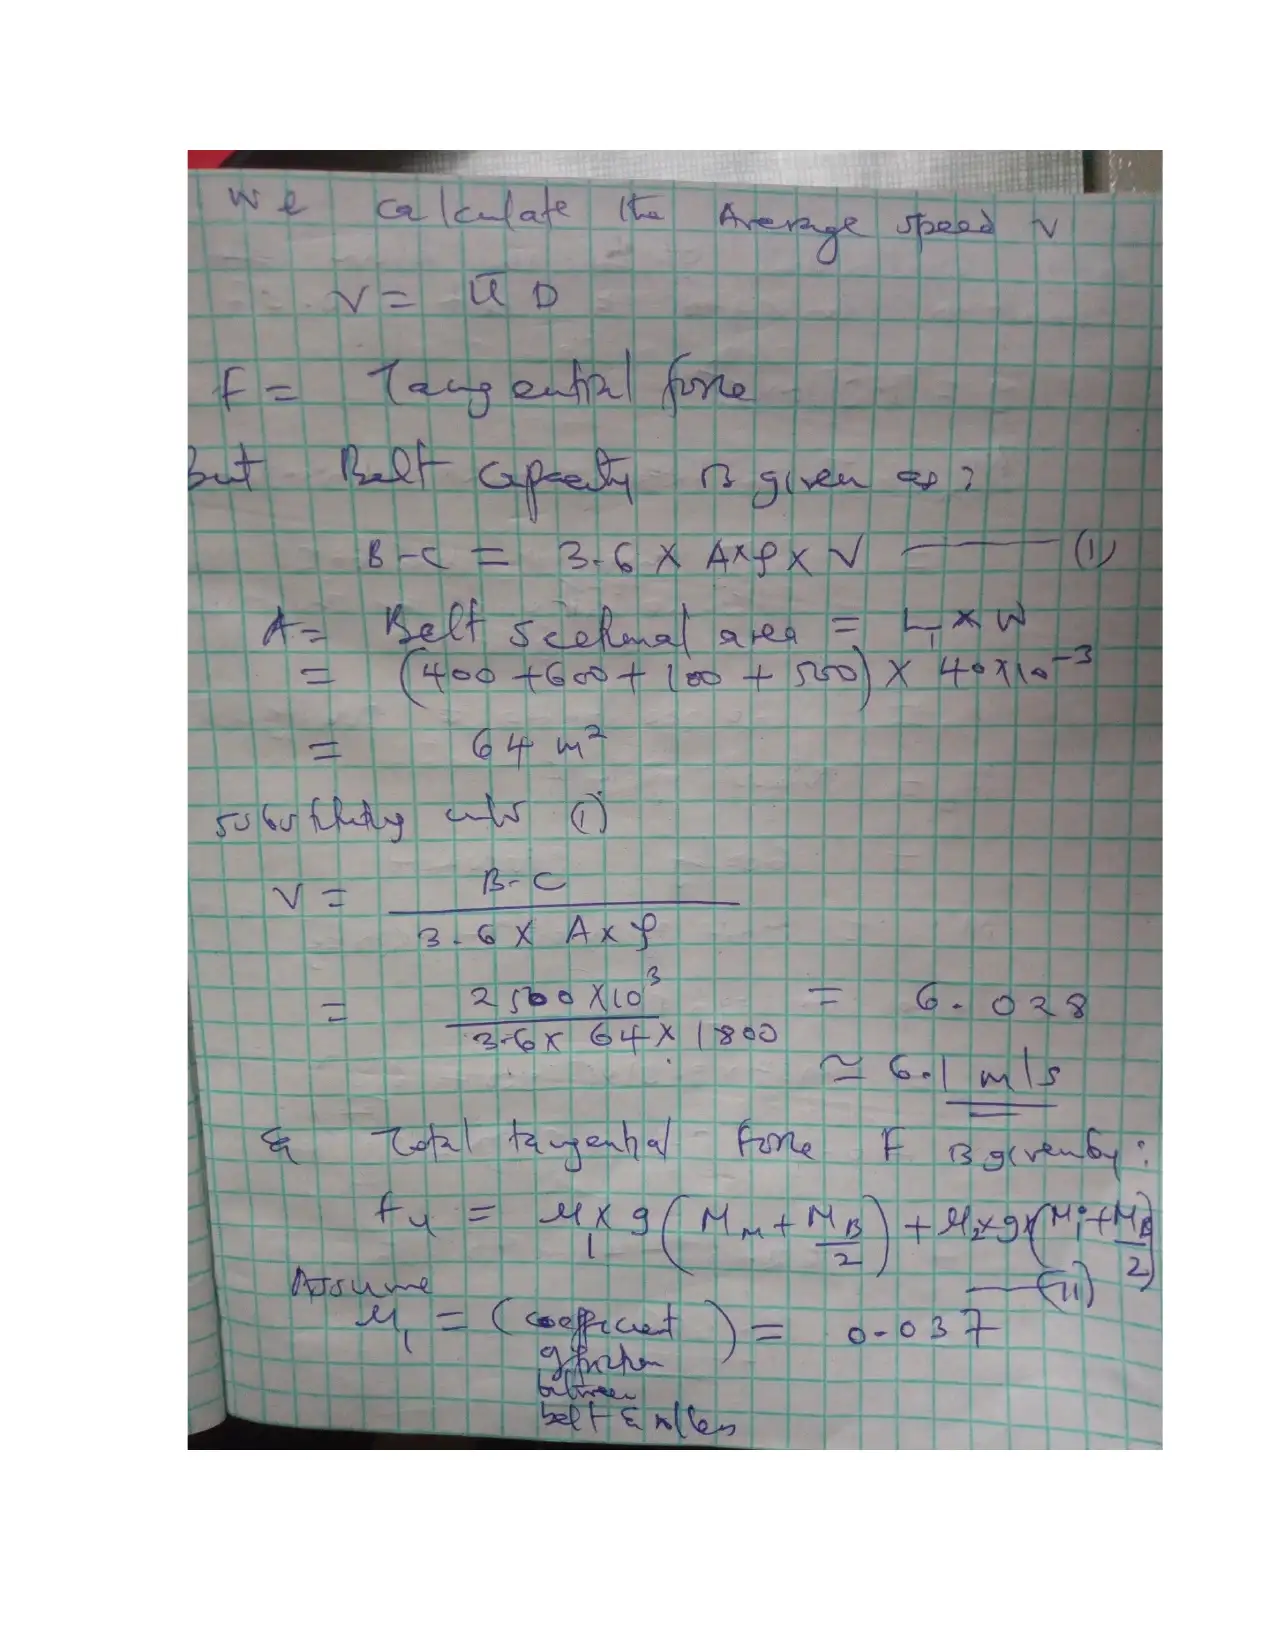 We calculate the Average speed V
V = ū D
F = Tangential force
But Belt capacity is given as:
B-C = 3.6 × A×ρ× V —— (1)
A = Belt sectional area = L₁ × W
= (400 + 600 + 100 + 500) × 40×10⁻³
= 64 m²
substituting into (1)
V = B-C
3.6 × A × ρ
= 2500 ×10³ = 6.028
3.6 × 64 × 1800
≃ 6.1 m/s
& Total tangential force F is given by:
Fu = μ₁ × g (Mm + MB/2) + μ₂ × g × (Mi + MB/2)
Assume —— (11)
μ₁ = (coefficient) = 0.037
of friction
between
belt & rollers